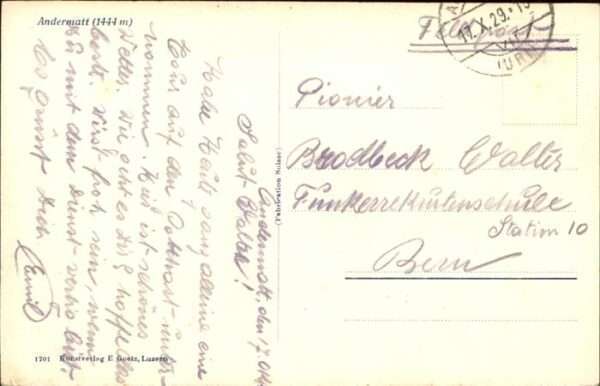 Andermatt (1444 m)
Andermatt, den 17. Okt.
Salut Walter!
Habe Heute ganz alleine eine
Tour auf den Gotthard unter-
nommen. Hier ist schönes
Wetter. Wie geht es Dir, hoffe das
beste. Wirst froh sein, wenn
Du mit dem Dienst fertig bist.
Es grüsst Dich
Emil
1701 Kunstverlag E. Goetz, Luzern
(Fabrication Suisse)
Feldpost
17.X.29.
Pionier
Brodbeck Walter
Funkerrekrutenschule
Station 10
Bern